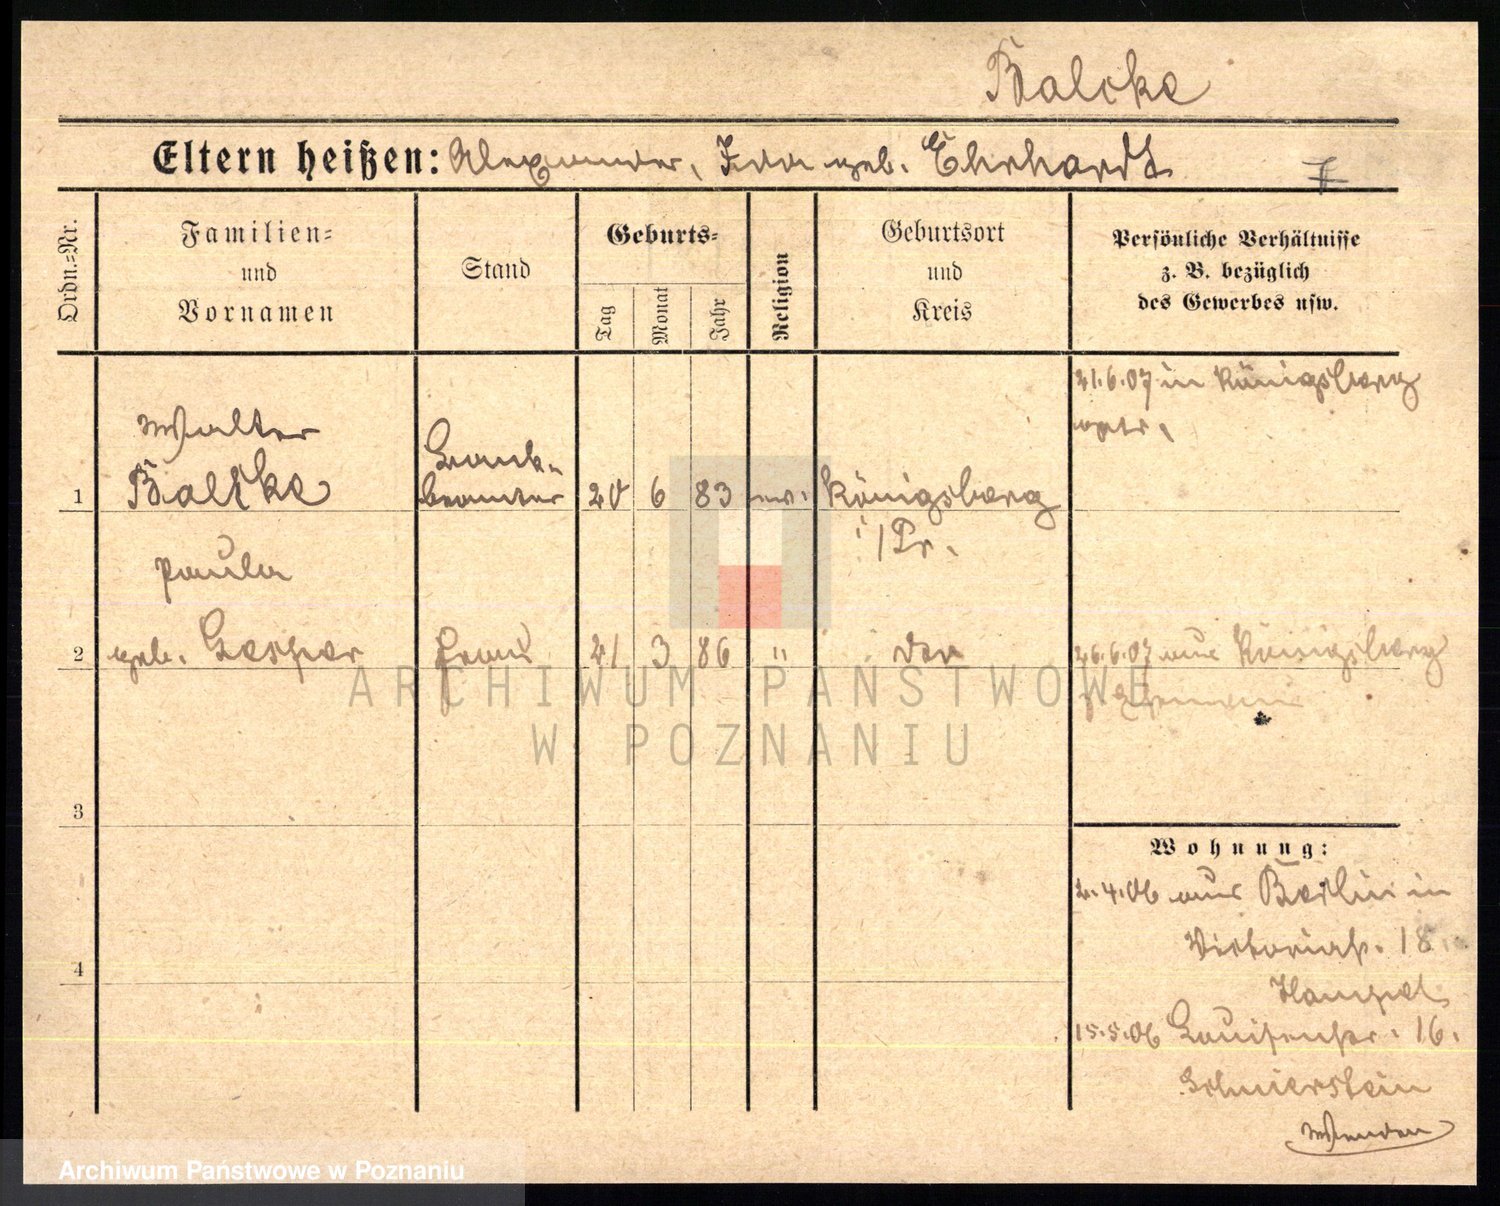 Balcke
Eltern heißen: Alexander, Ida geb. Ehrhardt
Ordn.=Nr.
Familien=
und
Vornamen
Stand
Geburts=
Tag
Monat
Jahr
Religion
Geburtsort
und
Kreis
Persönliche Verhältnisse
z. B. bezüglich
des Gewerbes usw.
21.6.07 in Königsberg
Walter
Bank-
1 Balcke beamter 20 6 83 ev. Königsberg
i/Pr.
Paula
2 geb. Frau 21 3 86 " 26.6.07 aus Königsberg
ARCHIWUM PAŃSTWOWE
W POZNANIU
3
Wohnung:
2.4.06 aus Berlin in
Victoriastr. 18.
4
15.5.06 Louisenstr. 16.
Wenden
Archiwum Państwowe w Poznaniu